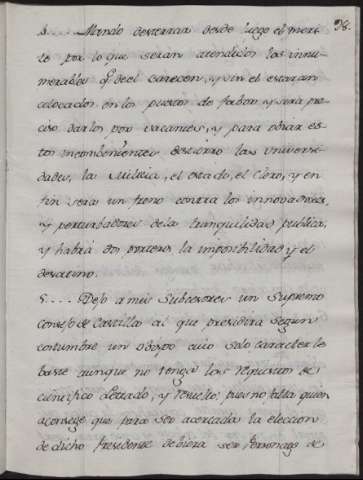 98.
4.... Mando desterrar desde luego el meri-
to por lo que seran atendidos los innu-
merables q.e de el carecen, y sin el estaran
colocados en los puestos de fabor y sera pre-
ciso darlos por vacantes, y para obiar es-
tos inconbenientes destierro las Universi-
dades, la Milicia, el estado, el Clero, y en
fin sera un freno contra los innovadores,
y perturbadores de la tranquilidad publica,
y habrá dos porteros la imposibilidad y el
desatino.
5.... Dejo a mis Subcesores un Supremo
Consejo de Castilla al que presidira segun
costumbre un obispo cuio solo caracter le
baste aunque no tenga los requisitos de
cientifico Letrado, y resuelto; pues no falta quien
aconseje que para ser acertada la eleccion
de dicho Presidente debiera ser Personage de